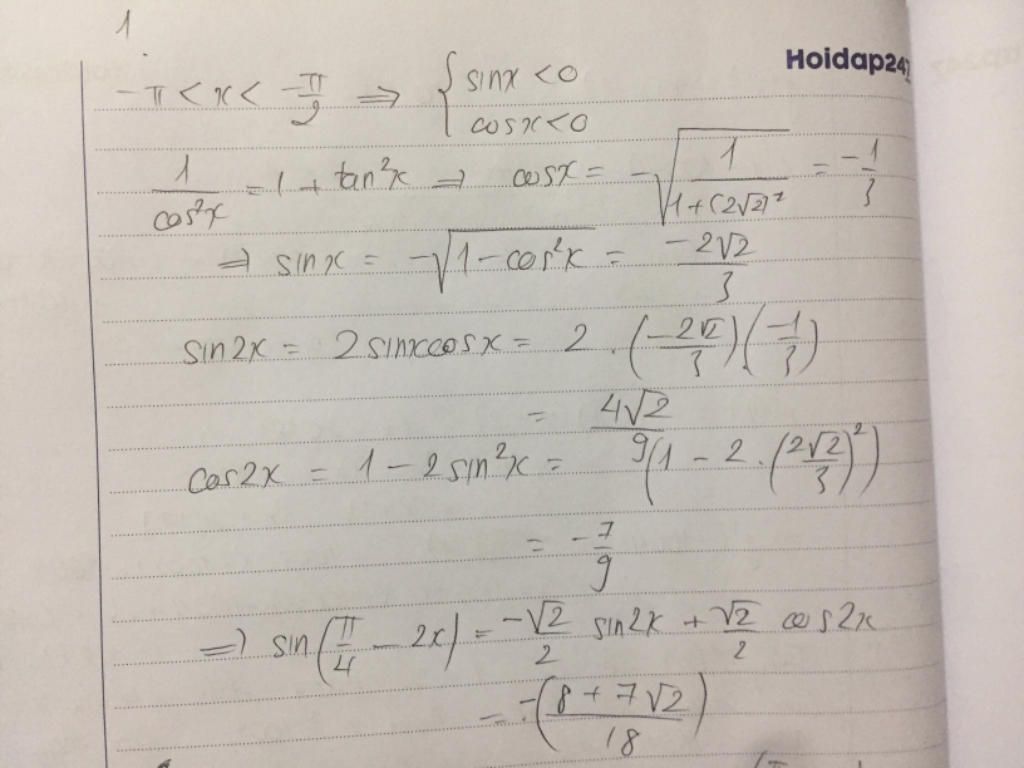 1
Hoidap247
-π < x < -π/2 ⇒ { sinx < 0
cosx < 0
1/cos²x = 1 + tan²x ⇒ cosx = -√(1/(1+(2√2)²)) = -1/3
⇒ sinx = -√(1-cos²x) = -2√2/3
sin2x = 2sinxcosx = 2 . (-2√2/3)(-1/3)
= 4√2/9
cos2x = 1 - 2sin²x = (1 - 2 . (2√2/3)²)
= -7/9
⇒ sin(π/4 - 2x) = -√2/2 sin2x + √2/2 cos2x
= -(8 + 7√2/18)